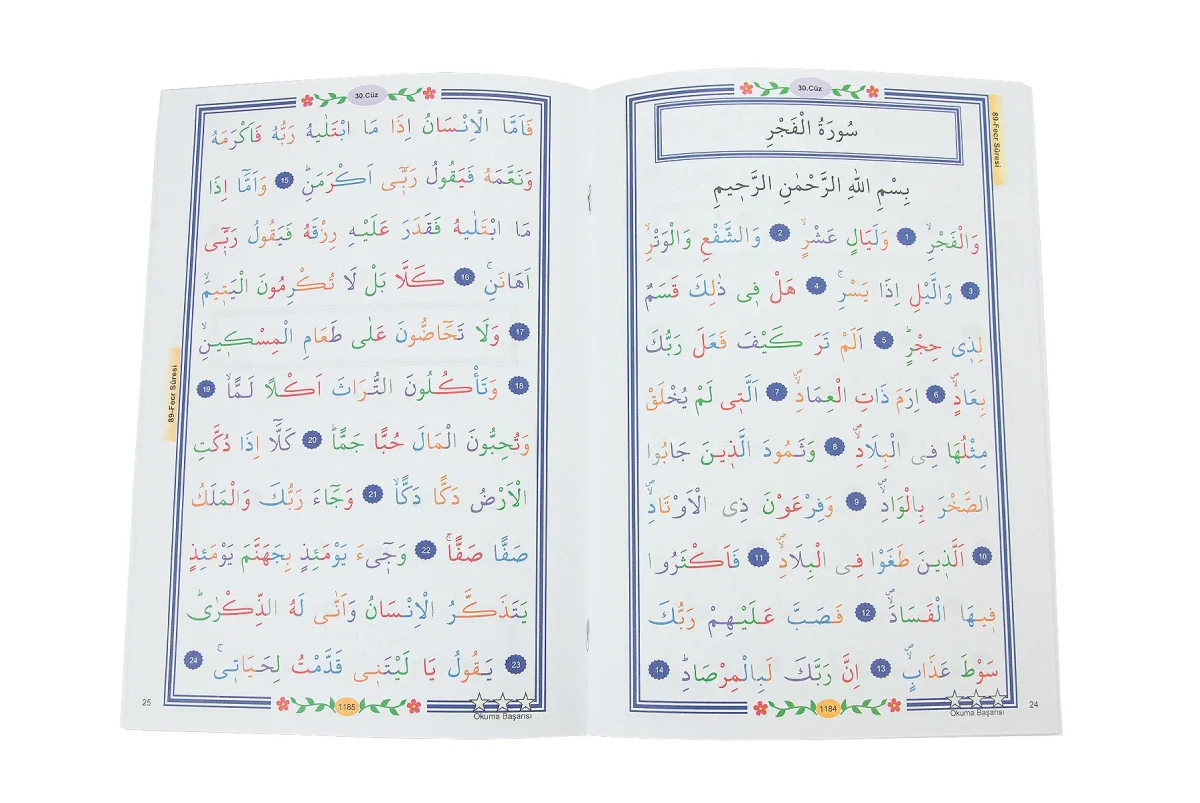 30.Cüz
89-Fecr Sûresi
سُورَةُ الْفَجْرِ
بِسْمِ اللهِ الرَّحْمٰنِ الرَّحِيمِ
وَالْفَجْرِۙ 1 وَلَيَالٍ عَشْرٍۙ 2 وَالشَّفْعِ وَالْوَتْرِۙ
3 وَالَّيْلِ اِذَا يَسْرِۚ 4 هَلْ فِى ذٰلِكَ قَسَمٌ
لِذِى حِجْرٍۜ 5 اَلَمْ تَرَ كَيْفَ فَعَلَ رَبُّكَ
بِعَادٍۙ 6 اِرَمَ ذَاتِ الْعِمَادِۙ 7 اَلَّتِى لَمْ يُخْلَقْ
مِثْلُهَا فِى الْبِلَادِۙ 8 وَثَمُودَ الَّذِينَ جَابُوا
الصَّخْرَ بِالْوَادِۙ 9 وَفِرْعَوْنَ ذِى الْاَوْتَادِۙ
10 اَلَّذِينَ طَغَوْا فِى الْبِلَادِۙ 11 فَاَكْثَرُوا
فِيهَا الْفَسَادَۙ 12 فَصَبَّ عَلَيْهِمْ رَبُّكَ
سَوْطَ عَذَابٍۙ 13 اِنَّ رَبَّكَ لَبِالْمِرْصَادِۜ 14
Okuma Başarısı
1184
24
30.Cüz
89-Fecr Sûresi
فَاَمَّا الْاِنْسَانُ اِذَا مَا ابْتَلٰيهُ رَبُّهُ فَاَكْرَمَهُ
وَنَعَّمَهُ فَيَقُولُ رَبِّٓى اَكْرَمَنِۜ 15 وَاَمَّٓا اِذَا
مَا ابْتَلٰيهُ فَقَدَرَ عَلَيْهِ رِزْقَهُ فَيَقُولُ رَبِّٓى
اَهَانَنِۚ 16 كَلَّا بَلْ لَا تُكْرِمُونَ الْيَتِيمَۙ
17 وَلَا تَحَٓاضُّونَ عَلٰى طَعَامِ الْمِسْكِينِۙ
18 وَتَأْكُلُونَ التُّرَاثَ اَكْلًا لَمًّاۙ 19
وَتُحِبُّونَ الْمَالَ حُبًّا جَمًّاۜ 20 كَلَّٓا اِذَا دُكَّتِ
الْاَرْضُ دَكًّا دَكًّاۙ 21 وَجَٓاءَ رَبُّكَ وَالْمَلَكُ
صَفًّا صَفًّاۚ 22 وَجِٓىءَ يَوْمَئِذٍ بِجَهَنَّمَ يَوْمَئِذٍ
يَتَذَكَّرُ الْاِنْسَانُ وَاَنّٰى لَهُ الذِّكْرٰىۜ
23 يَقُولُ يَا لَيْتَنِى قَدَّمْتُ لِحَيَاتِىۚ 24
Okuma Başarısı
1185
25